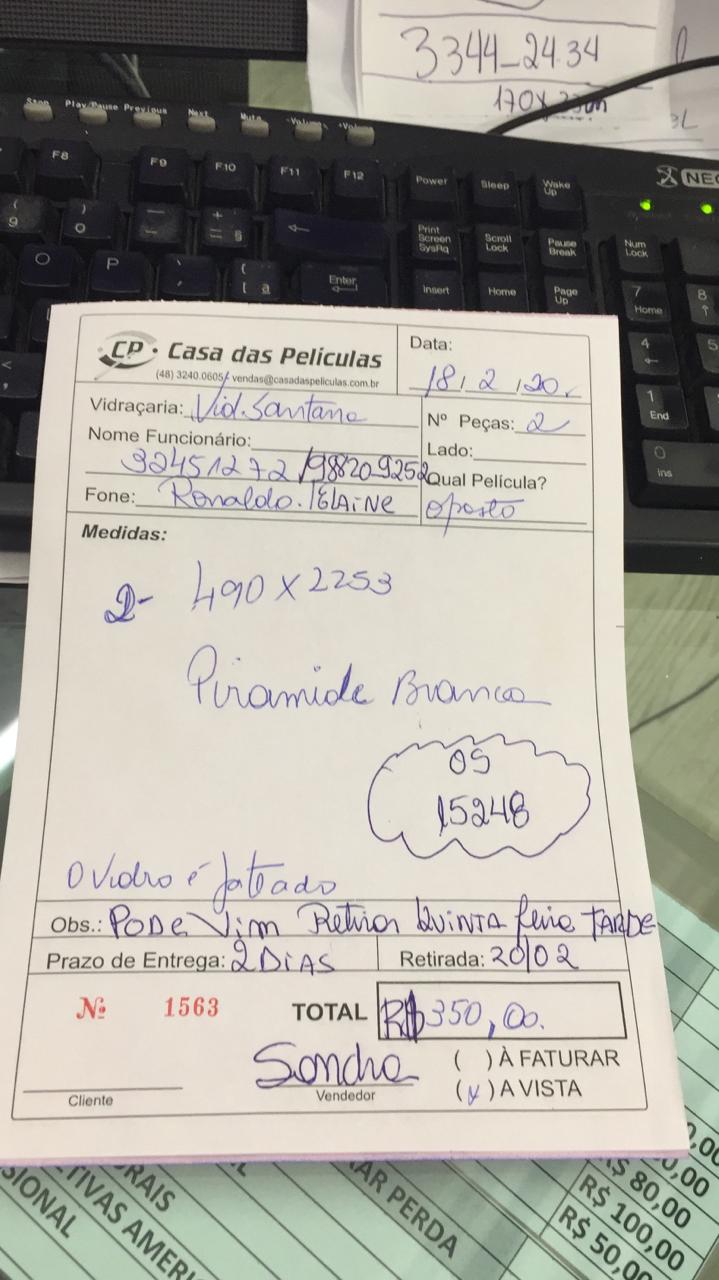 3344-24.34
170x
Stop Play/Pause Previous Next Mute -Volume +Volume
F8 F9 F10 F11 F12 Power Sleep Wake Up
NEO
Print Screen SysRq Scroll Lock Pause Break Num Lock
O P Enter Insert Home Page Up 7 Home 8
4 5
1 End
0 Ins
CP Casa das Películas
(48) 3240.0605/ vendas@casadaspeliculas.com.br
Data:
18/2/20.
Vidraçaria: Vid. Santana
Nº Peças: 2
Nome Funcionário:
32451272/988209252
Lado:
Fone: Ronaldo./ELAiNe
Qual Película?
oposto
Medidas:
2- 490 x 2253
Piramide Branca
OS
15248
O Vidro é Jateado
Obs.: PODe Vim Retirar QUiNTA feira TARDE
Prazo de Entrega: 2 DiAS
Retirada: 20/02
Nº 1563
TOTAL R$350,00.
Sandra
( ) À FATURAR
(x) A VISTA
Cliente
Vendedor
R$ 80,00
R$ 100,00
R$ 50,00
PERDA